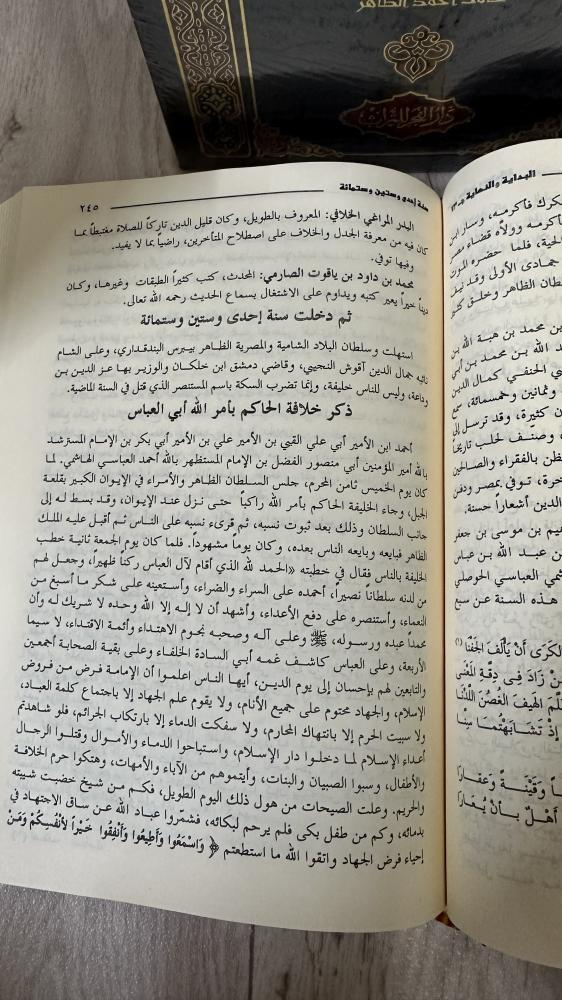 حامد أحمد الطاهر
دار الفجر للتراث
سنة إحدى وستين وستمائة
٢٤٥
البدر المراغي الخلافي: المعروف بالطويل، وكان قليل الدين تاركاً للصلاة مغتبطاً بما
كان فيه من معرفة الجدل والخلاف على اصطلاح المتأخرين، راضياً بما لا يفيد.
وفيها توفي.
محمد بن داود بن ياقوت الصارمي: المحدث، كتب كثيراً الطبقات وغيرها، وكان
ديناً خيراً يعير كتبه ويداوم على الاشتغال بسماع الحديث رحمه الله تعالى.
ثم دخلت سنة إحدى وستين وستمائة
استهلت وسلطان البلاد الشامية والمصرية الظاهر بيبرس البندقداري، وعلى الشام
نائبه جمال الدين آقوش النجيبي، وقاضي دمشق ابن خلكان والوزير بها عز الدين بن
وداعة، وليس للناس خليفة، وإنما تضرب السكة باسم المستنصر الذي قتل في السنة الماضية.
ذكر خلافة الحاكم بأمر الله أبي العباس
أحمد ابن الأمير أبي علي القبي بن الأمير علي بن الأمير أبي بكر بن الإمام المسترشد
بالله أمير المؤمنين أبي منصور الفضل بن الإمام المستظهر بالله أحمد العباسي الهاشمي. لما
كان يوم الخميس ثامن المحرم، جلس السلطان الظاهر والأمراء في الإيوان الكبير بقلعة
الجبل، وجاء الخليفة الحاكم بأمر الله راكباً حتى نزل عند الإيوان، وقد بسط له إلى
جانب السلطان وذلك بعد ثبوت نسبه، ثم قرىء نسبه على الناس ثم أقبل عليه الملك
الظاهر فبايعه وبايعه الناس بعده، وكان يوماً مشهوداً. فلما كان يوم الجمعة ثانية خطب
الخليفة بالناس فقال في خطبته «الحمد لله الذي أقام لآل العباس ركناً ظهيراً، وجعل لهم
من لدنه سلطاناً نصيراً، أحمده على السراء والضراء، وأستعينه على شكر ما أسبغ من
النعماء، وأستنصره على دفع الأعداء، وأشهد أن لا إله إلا الله وحده لا شريك له وأن
محمداً عبده ورسوله، ﷺ وعلى آله وصحبه نجوم الاهتداء وأئمة الاقتداء، لا سيما
الأربعة، وعلى العباس كاشف غمه أبي السادة الخلفاء وعلى بقية الصحابة أجمعين
والتابعين لهم بإحسان إلى يوم الدين، أيها الناس اعلموا أن الإمامة فرض من فروض
الإسلام، والجهاد محتوم على جميع الأنام، ولا يقوم علم الجهاد إلا باجتماع كلمة العباد،
ولا سبيت الحرم إلا بانتهاك المحارم، ولا سفكت الدماء إلا بارتكاب الجرائم، فلو شاهدتم
أعداء الإسلام لما دخلوا دار الإسلام، واستباحوا الدماء والأموال وقتلوا الرجال
والأطفال، وسبوا الصبيان والبنات، وأيتموهم من الآباء والأمهات، وهتكوا حرم الخلافة
والحريم. وعلت الصيحات من هول ذلك اليوم الطويل، فكم من شيخ خضبت شيبته
بدمائه، وكم من طفل بكى فلم يرحم لبكائه، فشمروا عباد الله عن ساق الاجتهاد في
إحياء فرض الجهاد واتقوا الله ما استطعتم ﴿ وَاسْمَعُوا وَأَطِيعُوا وَأَنْفِقُوا خَيْرًا لأَنْفُسِكُمْ وَمَنْ
البداية والنهاية جـ١٣
كرك فأكرمه، وسار ابن
أكرمه وولاه قضاء مصر
لحية، فلما حضره الموت
جمادى الأولى وقد نيف
لطان الظاهر وخلق كثير
بن محمد بن هبة الله بن
د الله بن محمد بن أبي
ي الحنفي كمال الدين
وثمانين وخمسمائة، سمع
ن كثيرة، وقد ترسل إلى
وصنف لحلب تاريخاً
لظن بالفقراء والصالحين
خرة، توفي بمصر ودفن
الدين أشعاراً حسنة.
هيم بن موسى بن جعفر
ن عبد الله بن عباس
شمي العباسي الحوصلي
هذه السنة عن سبع
لكَرَى أَنْ يَأْلَفَ الجَفْنَا (١)
نْ زَادَ فِى دِقَّةِ المَعْنَى
لَّمَ الهَيفَ الغُصُنَ اللَّدْنَا
إِذْ تَشَابَهْتُمَا سِنَا
اً وَقَيْنَةً وَعقَارَا
أَهْلٌ بِأَنْ يُمَارَا